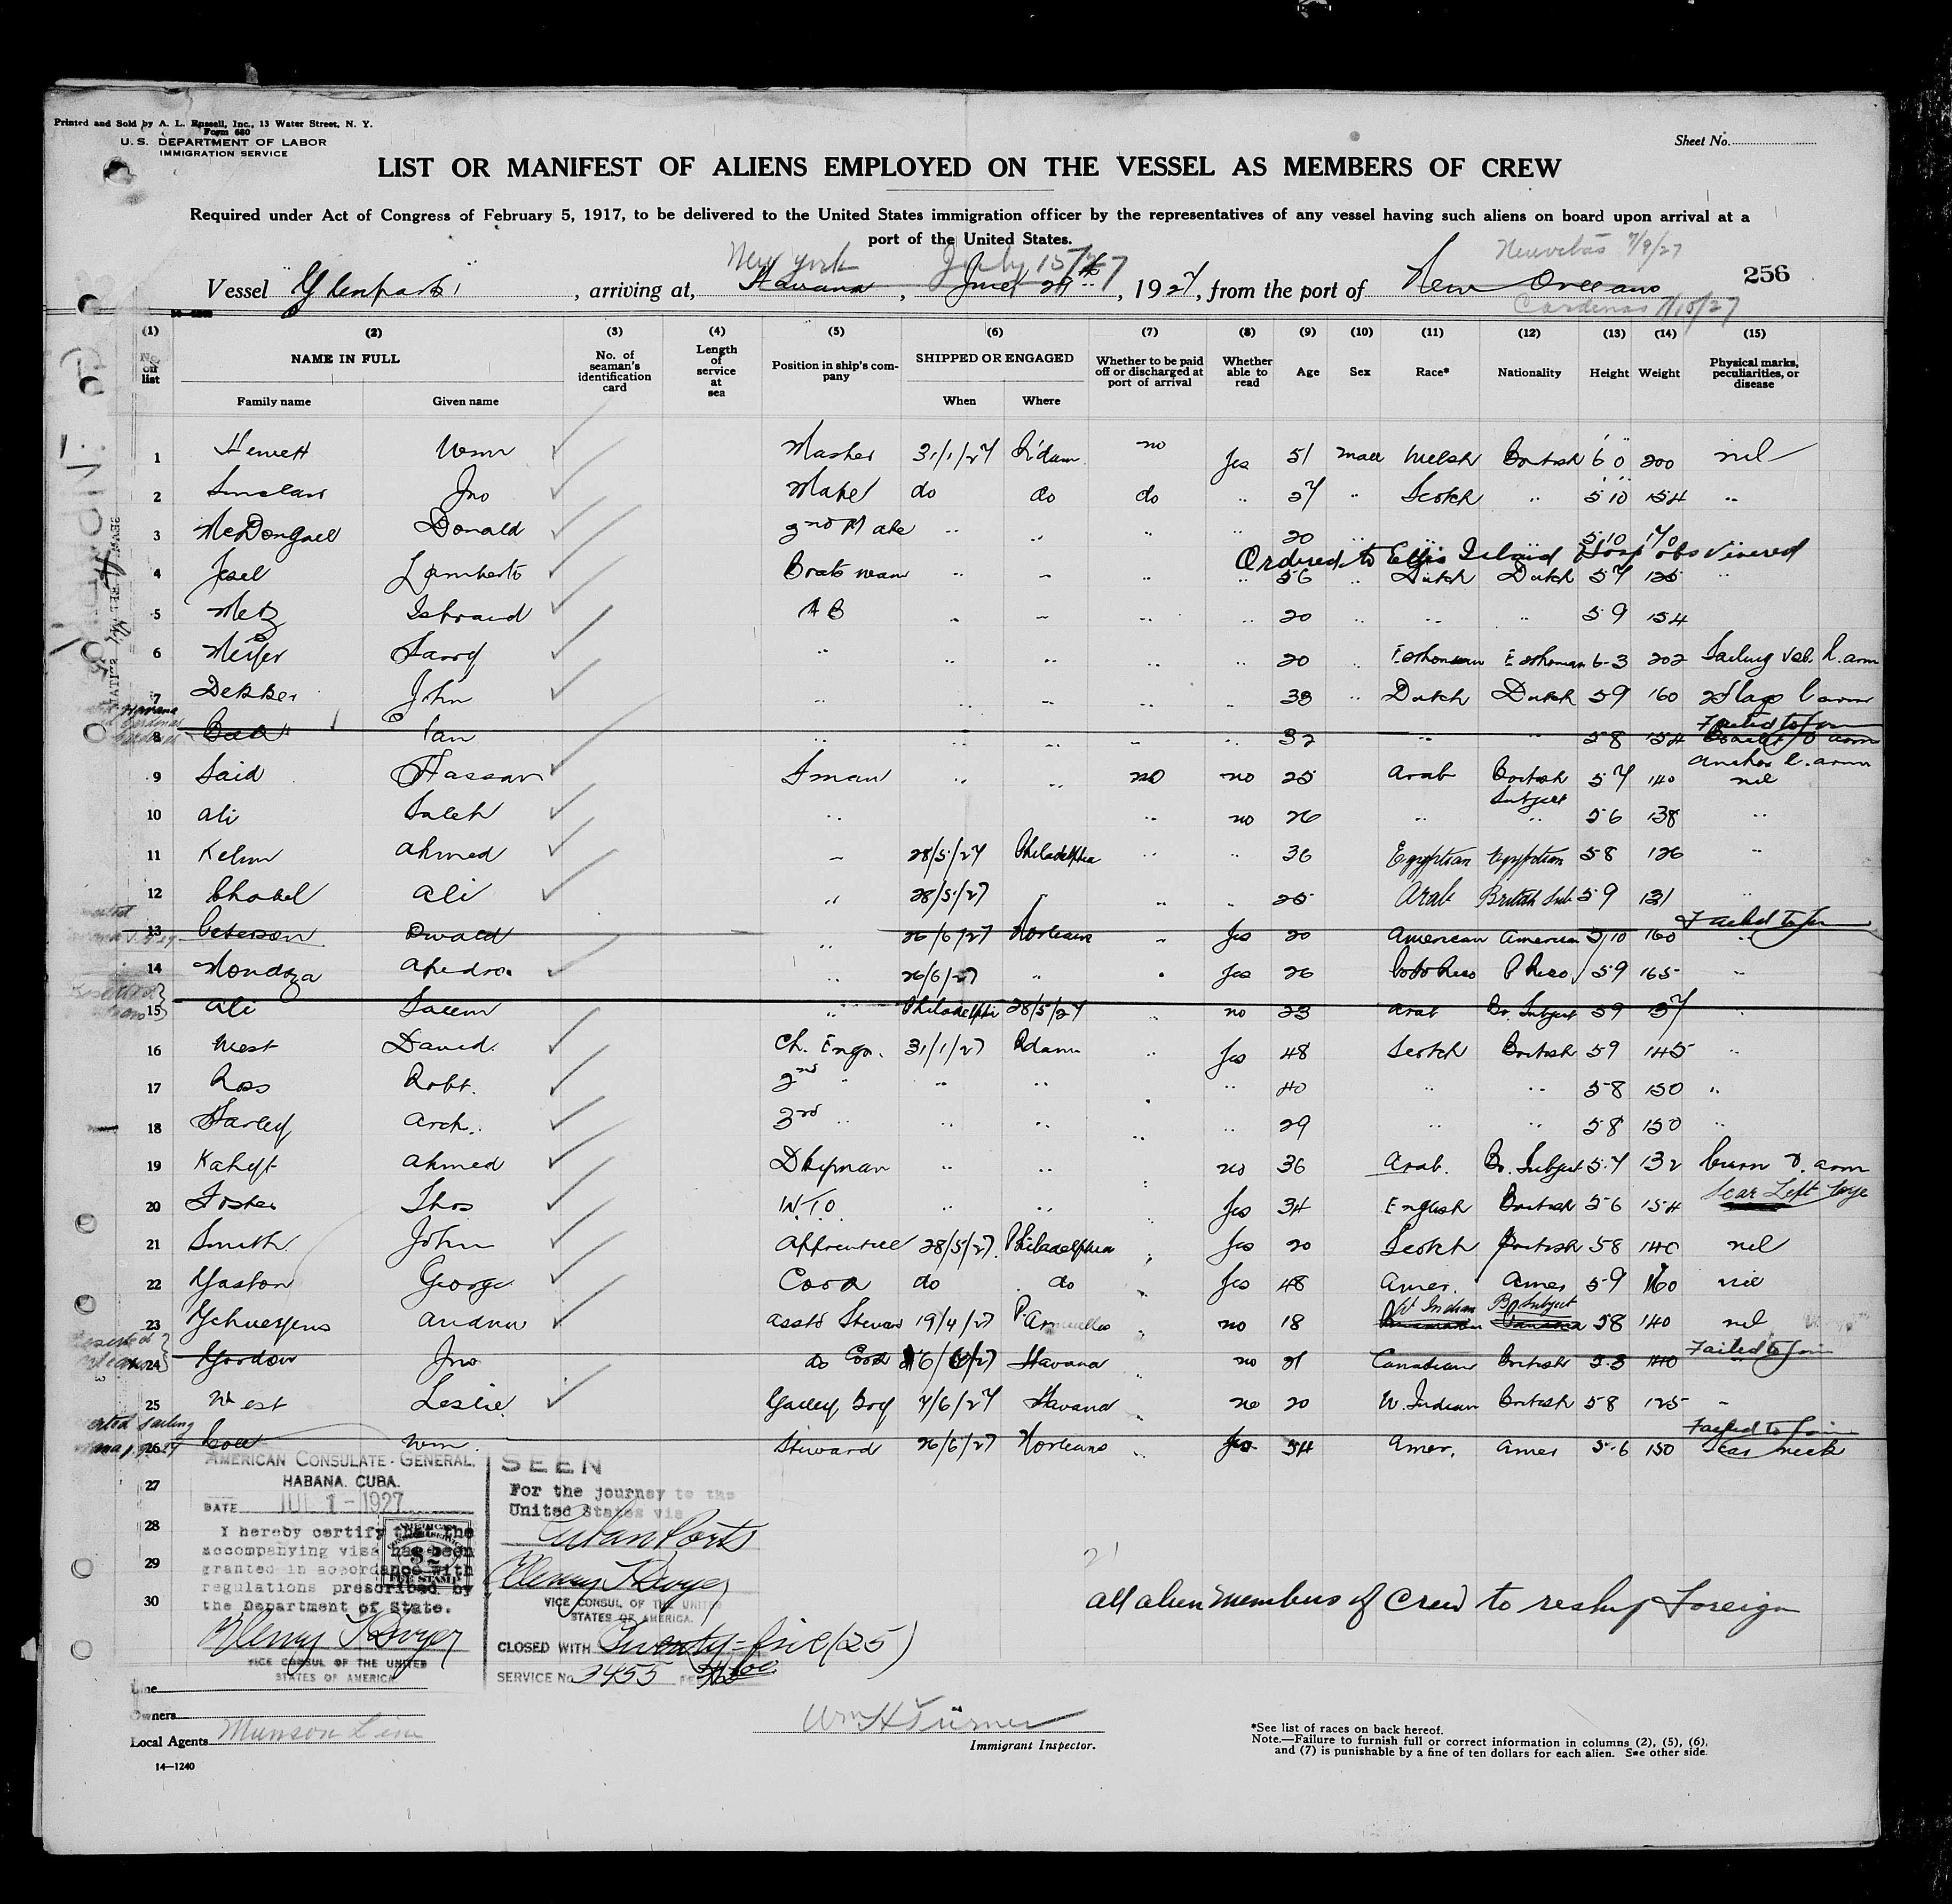 Printed and Sold by A. L. Russell, Inc., 13 Water Street, N. Y.
Form 680
U. S. DEPARTMENT OF LABOR
IMMIGRATION SERVICE
Sheet No.
LIST OR MANIFEST OF ALIENS EMPLOYED ON THE VESSEL AS MEMBERS OF CREW
Required under Act of Congress of February 5, 1917, to be delivered to the United States immigration officer by the representatives of any vessel having such aliens on board upon arrival at a
port of the United States.
New York July 15/27 Neuvitas 7/9/27
Vessel "Glenpark", arriving at, Havana, June 29th, 1927, from the port of New Orleans 256
Cardenas 7/10/27
(1) (2) (3) (4) (5) (6) (7) (8) (9) (10) (11) (12) (13) (14) (15)
No. on list NAME IN FULL Family name Given name No. of seaman's identification card Length of service at sea Position in ship's company SHIPPED OR ENGAGED When Where Whether to be paid off or discharged at port of arrival Whether able to read Age Sex Race* Nationality Height Weight Physical marks, peculiarities, or disease
1 Hewett Master 31/1/27 R'dam no Yes 51 male Welsh British 6 0 200 nil
2 Sinclair Jno Mate do do do " 27 " Scotch " 5 10 154 "
3 McDougall Donald 2nd Mate " " " " 20 " " " 5 10 170
Ordered to Ellis Island Hosp
4 Jesel Lamberts Boatswan " " " " 56 " Dutch Dutch 5 7 125 "
5 Metz AB " " " " 20 " " " 5 9 154
6 Meijer Harry " " " " " 20 " Esthonian Esthonian 6-3 202 Sailing vsl. R. arm
7 Dekker John " " " " " 33 " Dutch Dutch 5 9 160 2 flags l arm
8 Jan " " " " " 32 " " 5 8 154 Failed to join
anchor l. arm
9 Said Hassan Fman " " no no 25 Arab British Subject 5 7 140 nil
10 Ali Saleh " " no 26 " " 5 6 138 "
11 Ahmed " 28/5/27 Philadelphia " " 36 Egyptian Egyptian 5 8 126 "
12 Ali " 28/5/27 " " " 25 Arab British Sub 5 9 131 "
13 Peterson Oswald " 26/6/27 Norleans " Yes 20 American American 5 10 160 Failed to join
14 " 26/6/27 " " Yes 26 Porto Rico P Rico 5 9 165 "
15 Ali Salem " Philadelphi 28/5/27 " no 23 Arab Br. Subject 5 9 137
16 West David Ch. Engr. 31/1/27 Rdam " Yes 48 Scotch British 5 9 145 "
17 Ross Robt. 2nd " " " " 40 " " 5 8 150 "
18 Harley Arch. 3rd " " " " " 29 " " 5 8 150 "
19 Ahmed Dkyman " " " no 36 Arab. Br. Subject 5 7 132 burn R. arm
20 Foster Thos W.T.O. " " " Yes 34 English British 5 6 154 Scar Left
21 Smith John Apprentice 28/5/27 Philadelphia " Yes 20 Scotch British 5 8 140 nil
22 Gaston George Cook do do " Yes 48 Amer. Amer 5 9 160 nil
23 Asst Steward 19/4/27 " no 18 W Indian Br Subject 5 8 140 nil
24 Gordon Jno do Cook Havana " no 21 Canadian British 5-8 140 Failed to join
25 West Leslie Galley Boy 7/6/27 Havana " no 20 W. Indian British 5 8 125 "
26 Wm. Steward 26/6/27 Norleans " Yes 54 Amer. Amer 5-6 150 Failed to join
Scar neck
27
28
29
30
AMERICAN CONSULATE-GENERAL,
HABANA, CUBA.
DATE JUL 1-1927
I hereby certify that the
accompanying visa has been
granted in accordance with
regulations prescribed by
the Department of State.
VICE CONSUL OF THE UNITED
STATES OF AMERICA
SEEN
For the journey to the
United States via
Cuban Ports
VICE CONSUL OF THE UNITED
STATES OF AMERICA.
CLOSED WITH Twenty-five (25)
SERVICE No. 3455
all alien members of crew to reship Foreign
Line
Owners
Local Agents Munson Line
Wm H Turner
Immigrant Inspector.
*See list of races on back hereof.
Note.—Failure to furnish full or correct information in columns (2), (5), (6),
and (7) is punishable by a fine of ten dollars for each alien. See other side.
14—1240